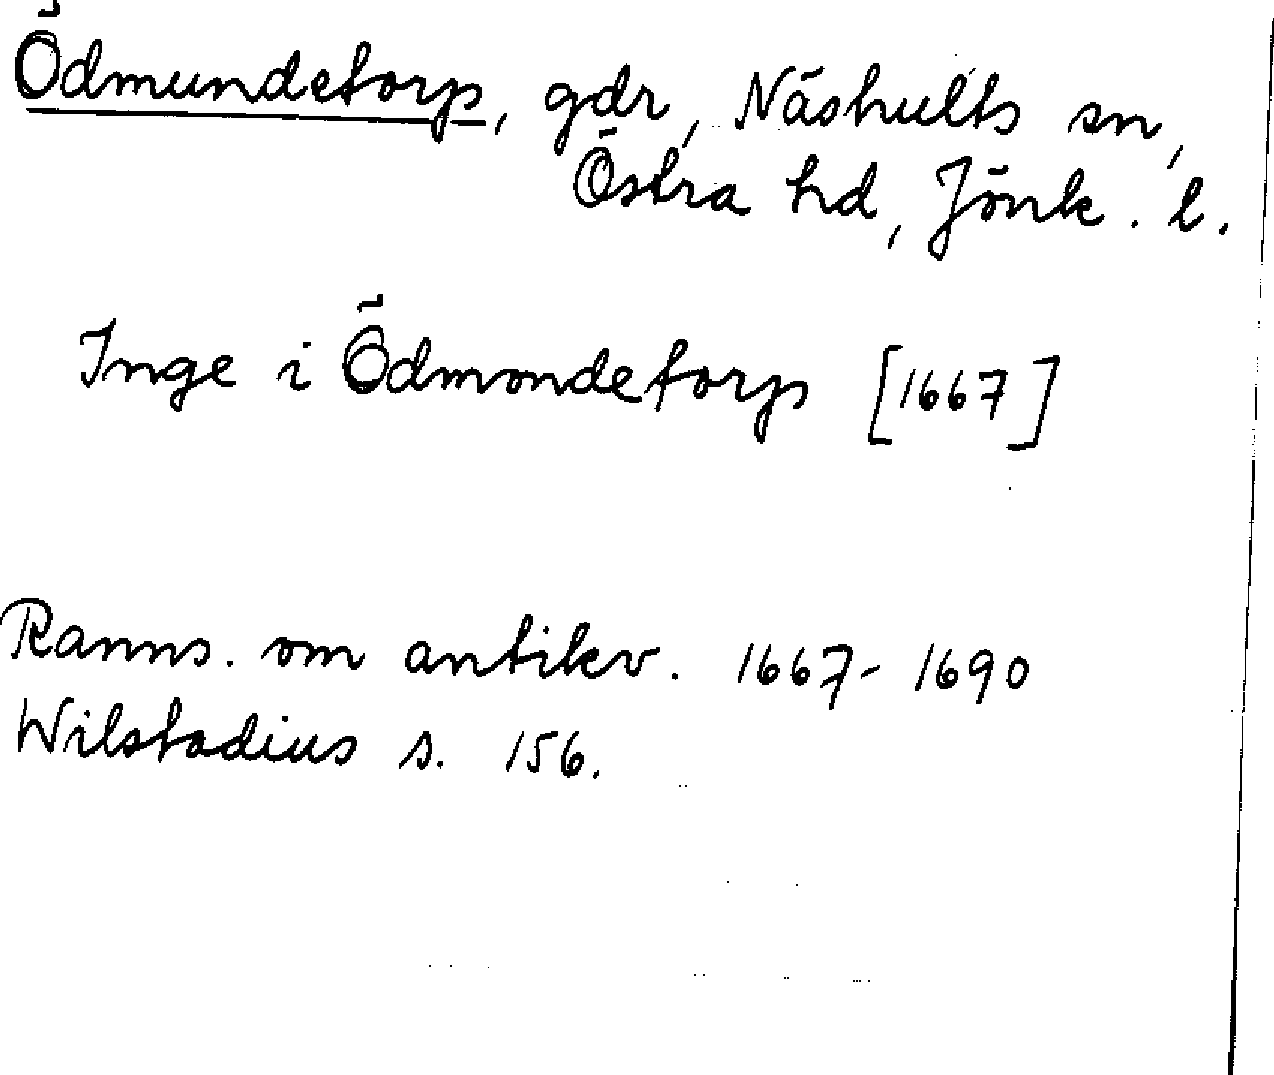 Ödmundetorp, gdr, Näshults sn,
Östra hd, Jönk. l.
Inge i Ödmondetorp [1667]
Ranns. om antikv. 1667-1690
Wilstadius s. 156.